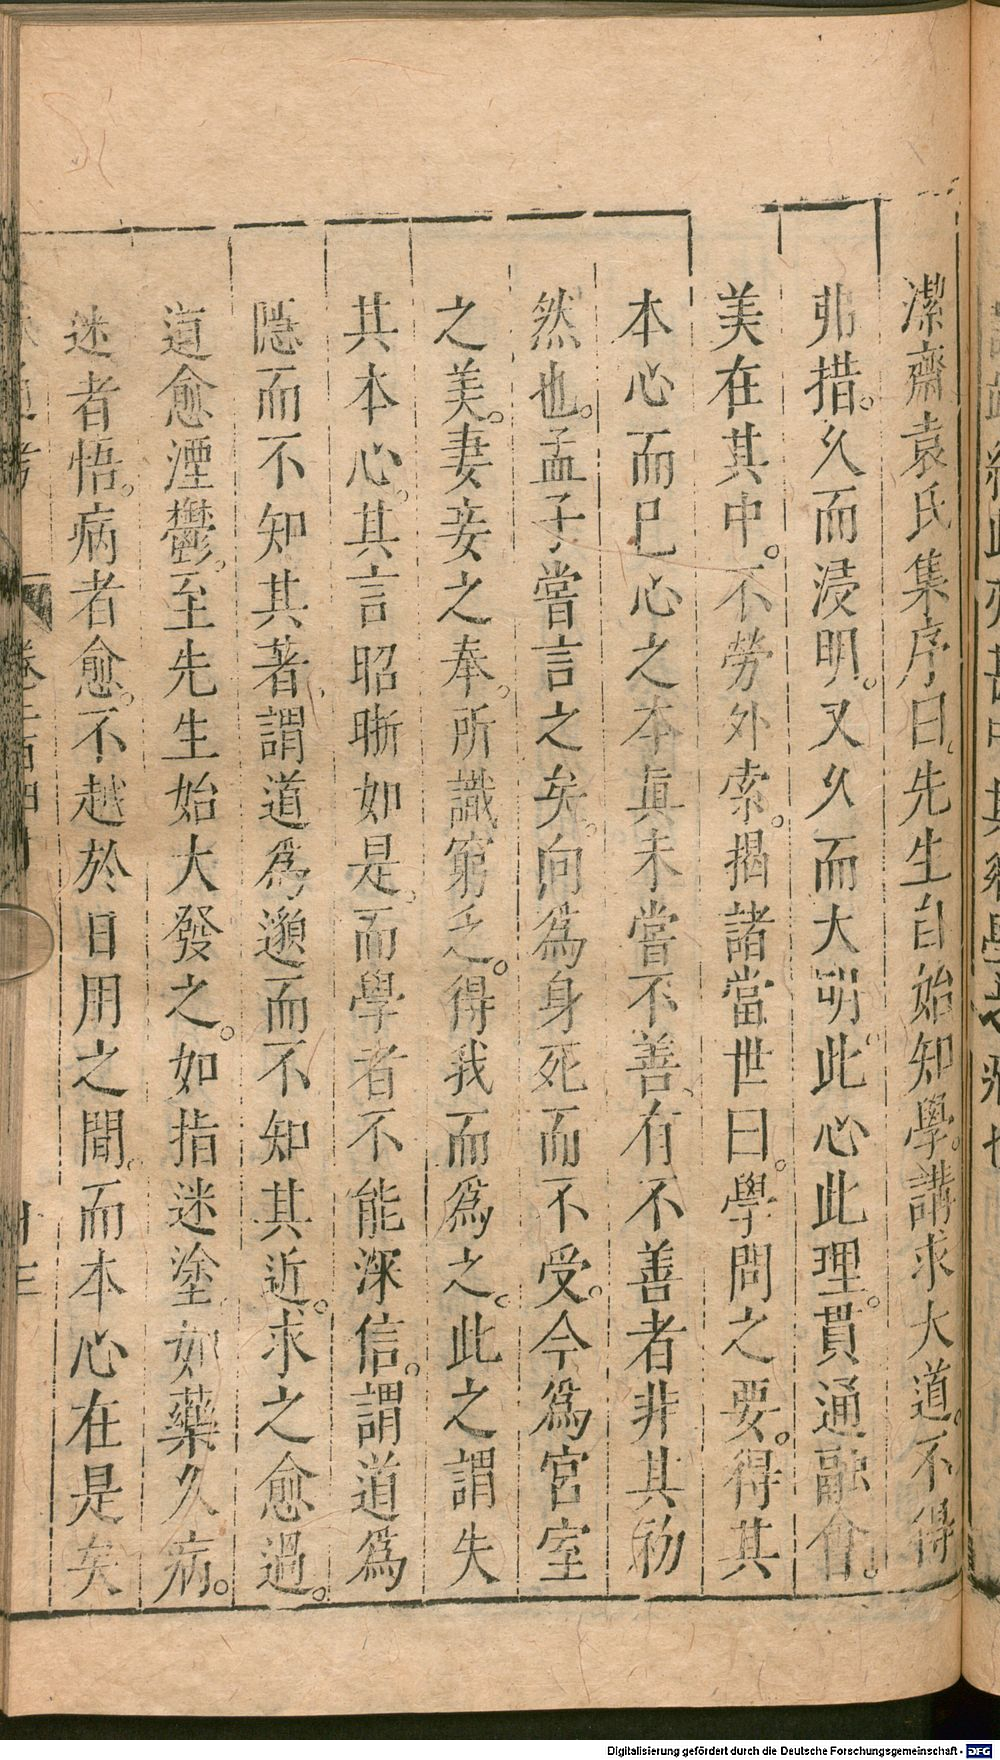 潔齋袁氏集序曰。先生自始知學。講求大道。不得
弗措。久而浸明。又久而大明。此心此理。貫通融會。
美在其中。不勞外索。揭諸當世曰。學問之要。得其
本心而已心之本真未嘗不善、有不善者非其初
然也。孟子嘗言之矣。向爲身死而不受。今爲宮室
之美。妻妾之奉。所識窮乏。得我而爲之。此之謂失
其本心。其言昭晰如是。而學者不能深信。謂道爲
隱而不知其著、謂道爲邈而不知其近。求之愈過。
道愈湮鬱。至先生始大發之。如指迷塗、如藥久病。
迷者悟。病者愈。不越於日用之間。而本心在是矣
Digitalisierung gefördert durch die Deutsche Forschungsgemeinschaft - DFG